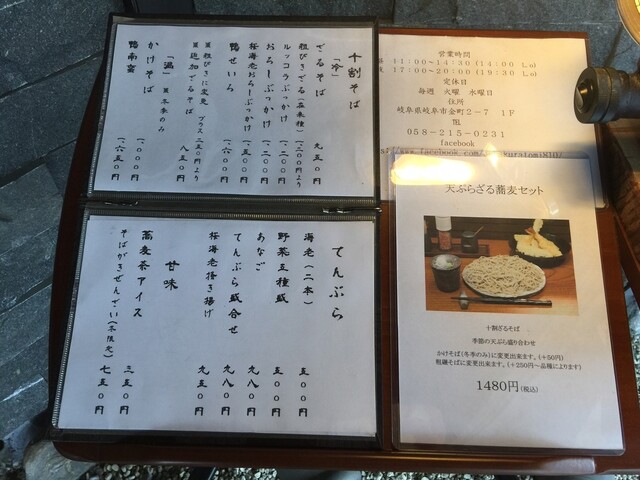 十割そば
「冷」
ざるそば 九五〇円
粗びきざる(在来種) 一二〇〇円より
ルッコラぶっかけ 一二〇〇円
おろしぶっかけ 一二〇〇円
桜海老おろしぶっかけ 一五〇〇円
鴨せいろ 一六〇〇円
※粗びきに変更 プラス二五〇円より
※追加ざるそば 八五〇円
「温」 ※冬季のみ
かけそば 一〇〇〇円
鴨南蛮 一六五〇円
てんぷら
海老(二本) 五〇〇円
野菜五種盛 五〇〇円
あなご 九八〇円
てんぷら盛合せ 九八〇円
桜海老掻き揚げ 九五〇円
甘味
蕎麦茶アイス 三五〇円
そばがきぜんざい(冬限定) 七五〇円
営業時間
11:00~14:30 (14:00 L.o)
17:00~20:00 (19:30 L.o)
定休日
毎週 火曜 水曜日
住所
岐阜県岐阜市金町2-7 1F
℡
058-215-0231
facebook
天ぷらざる蕎麦セット
十割ざるそば
季節の天ぷら盛り合わせ
かけそば(冬季のみ)に変更出来ます。(+50円)
粗碾そばに変更出来ます。(+250円~品種によります)
1480円(税込)